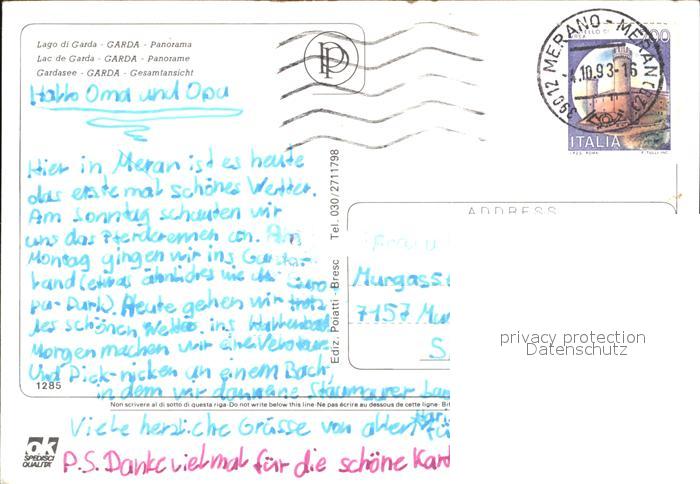 Lago di Garda - GARDA - Panorama
Lac de Garda - GARDA - Panorame
Gardasee - GARDA - Gesamtansicht
Hallo Oma und Opa
Hier in Meran ist es heute
das erste mal schönes Wetter.
Am Sonntag schauten wir
uns das Pferderennen an. Am
Montag gingen wir ins
land (etwas ähnliches wie
pa-Park). Heute gehen wir trotz
des schönen Wetter ins Hallenbad
Morgen machen wir eine Velotour
Und Pick-nicken an einem Bach,
in dem wir dann eine Staumauer
Non scrivere al di sotto di questa riga - Do not write below this line - Ne pas écrire au dessous de cette ligne
Viele herzliche Grüsse von allen
P.S. Danke vielmal für die schöne Kard
1285
ok
SPEDISCI
QUALITÀ
Ediz. Poiatti - Bresc Tel. 030/2711798
P
39012 MERANO - MERAN (BZ)
4.10.93-16
ITALIA
I.P.Z.S. ROMA
ADDRESS
Murgasst
7157 Mur
S
privacy protection
Datenschutz